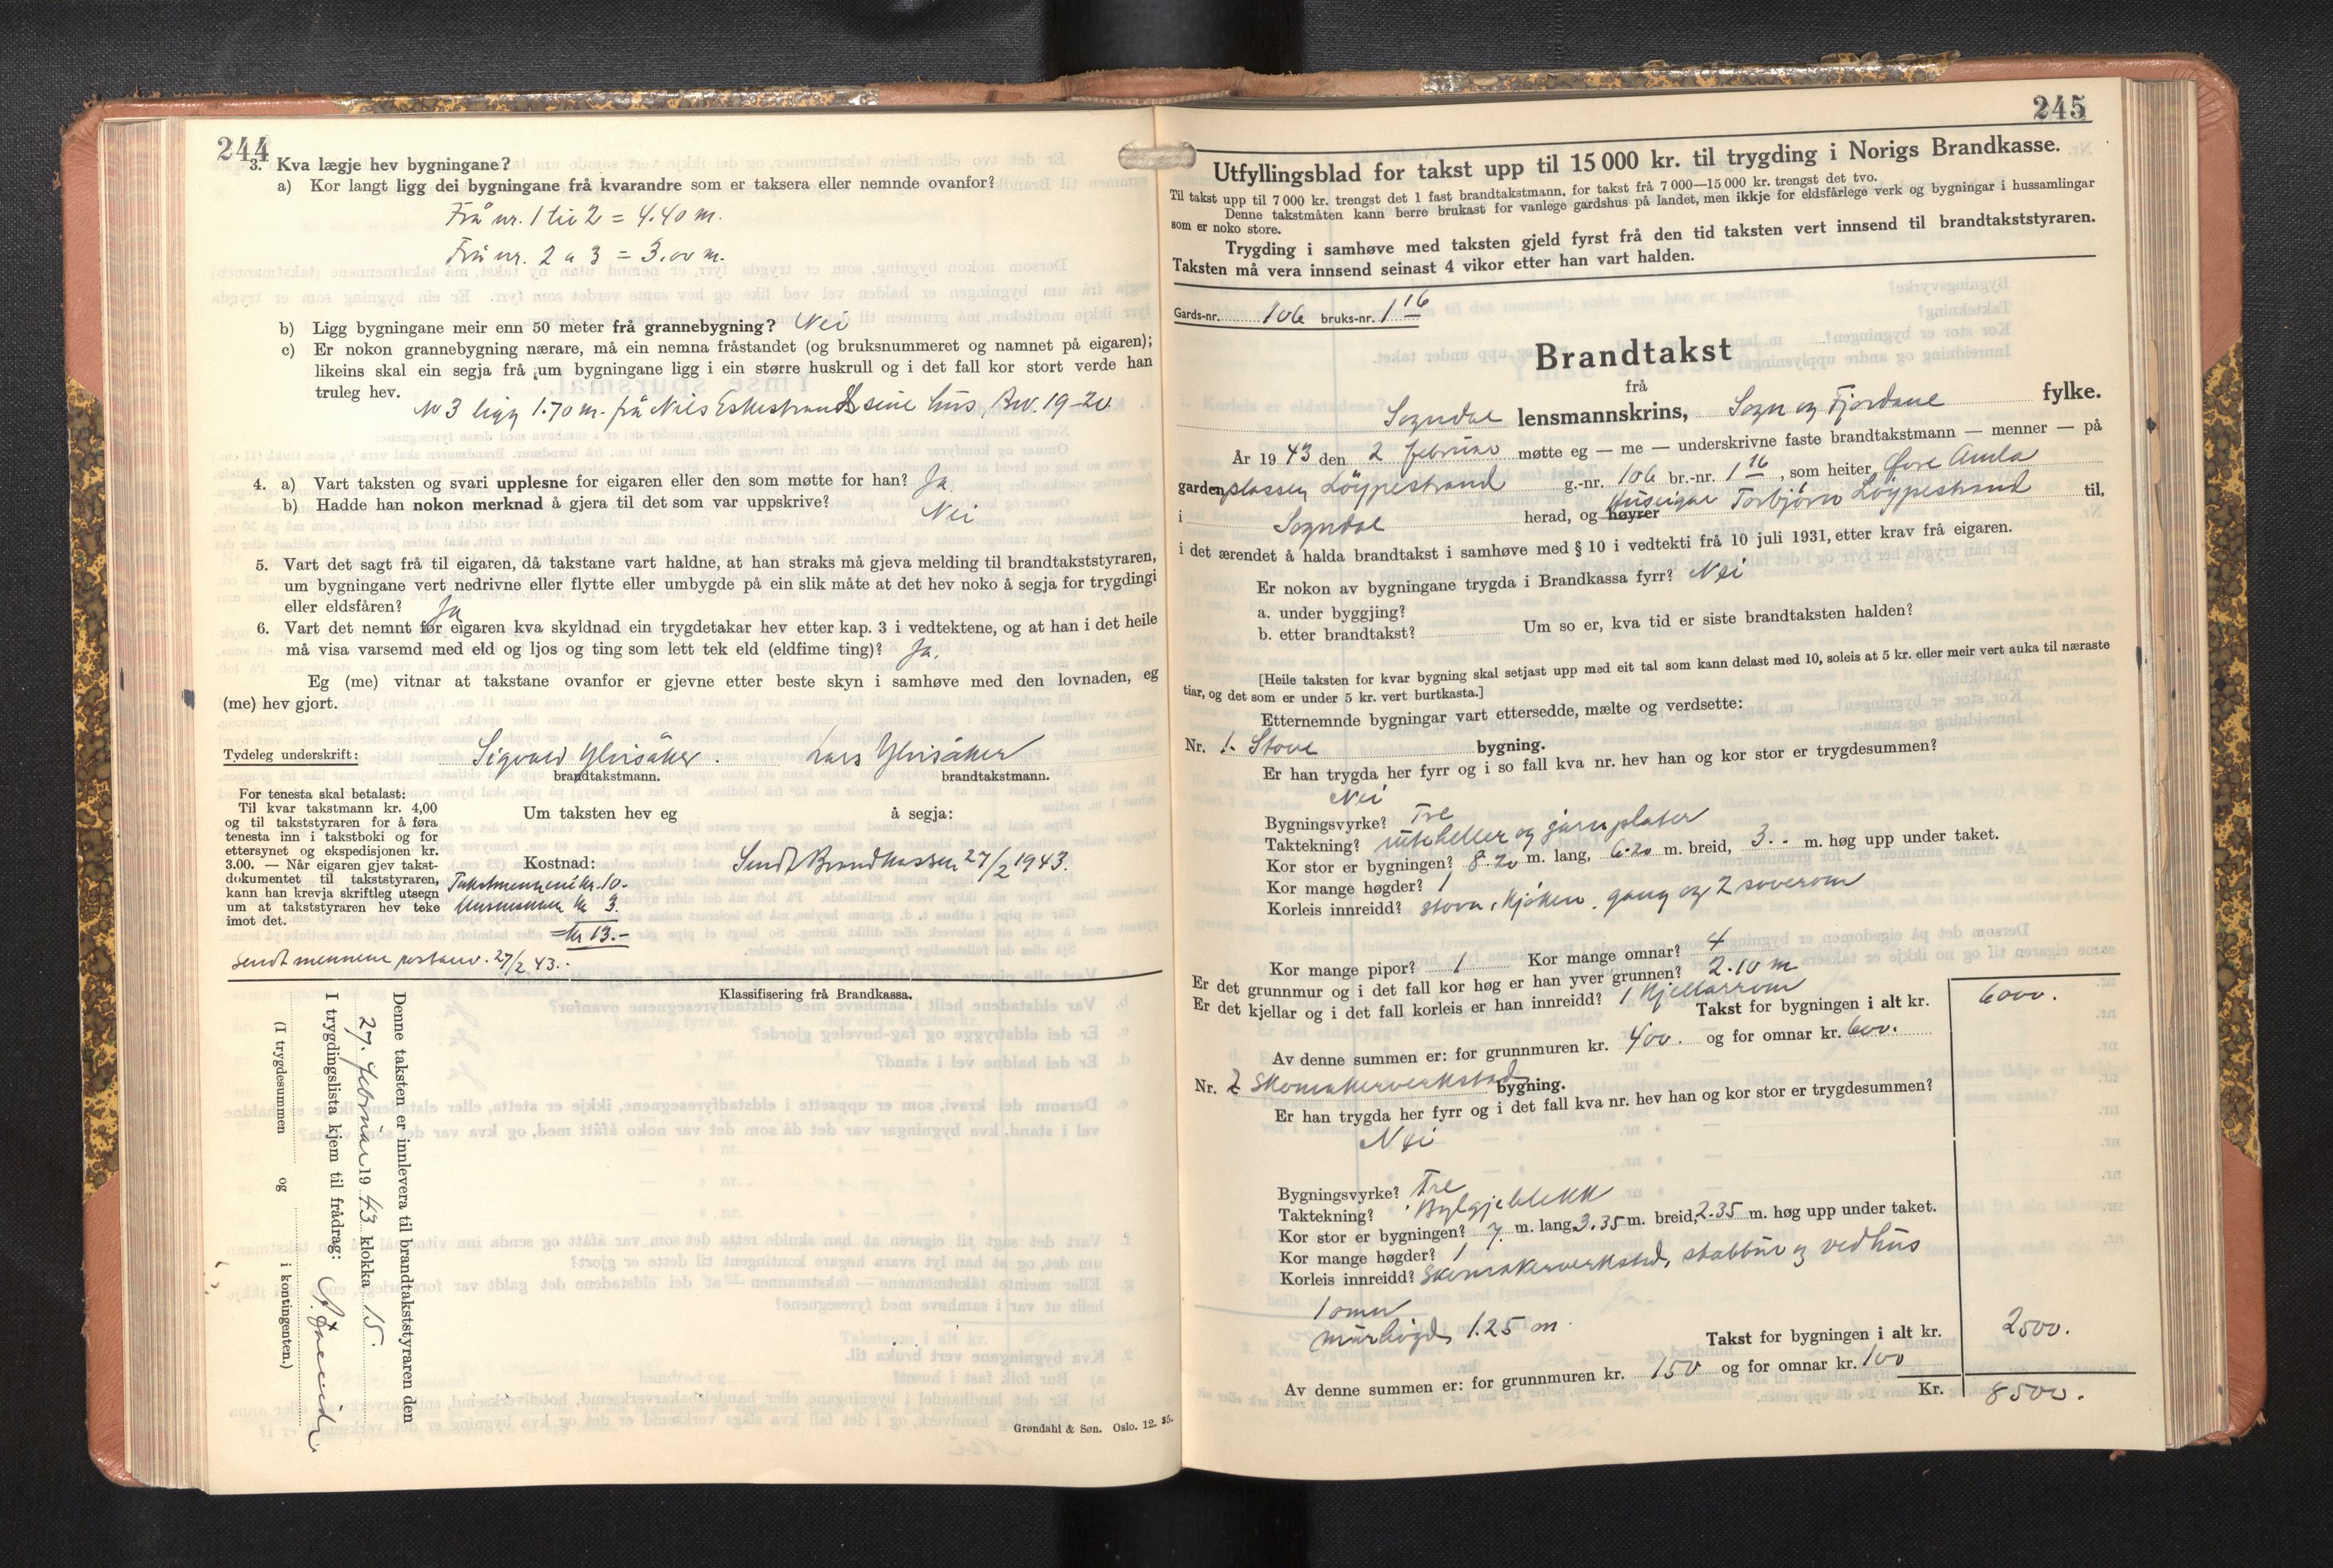 244
3. Kva lægje hev bygningane?
a) Kor langt ligg dei bygningane frå kvarandre som er taksera eller nemnde ovanfor?
Frå nr. 1 til 2 = 4.40 m.
Frå nr. 2 a 3 = 3,00 m.
b) Ligg bygningane meir enn 50 meter frå grannebygning? Nei
c) Er nokon grannebygning nærare, må ein nemna fråstandet (og bruksnummeret og namnet på eigaren);
likeins skal ein segja frå um bygningane ligg i ein større huskrull og i det fall kor stort verde han
truleg hev.
Nr 3 ligg 1.70 m. frå Nils Eskestrand sine hus, Bnr. 19-20
4. a) Vart taksten og svari upplesne for eigaren eller den som møtte for han? Ja
b) Hadde han nokon merknad å gjera til det som var uppskrive? Nei
5. Vart det sagt frå til eigaren, då takstane vart haldne, at han straks må gjeva melding til brandtakststyraren,
um bygningane vert nedrivne eller flytte eller umbygde på ein slik måte at det hev noko å segja for trygdingi
eller eldsfåren? Ja
6. Vart det nemnt for eigaren kva skyldnad ein trygdetakar hev etter kap. 3 i vedtektene, og at han i det heile
må visa varsemd med eld og ljos og ting som lett tek eld (eldfime ting)? Ja.
Eg (me) vitnar at takstane ovanfor er gjevne etter beste skyn i samhøve med den lovnaden, eg
(me) hev gjort.
Tydeleg underskrift: Sigvald Ylvisåker. Lars Ylvisåker
brandtakstmann. brandtakstmann.
For tenesta skal betalast:
Til kvar takstmann kr. 4,00
og til takststyraren for å føra
tenesta inn i takstboki og for
ettersynet og ekspedisjonen kr.
3.00. — Når eigaren gjev takst-
dokumentet til takststyraren,
kann han krevja skriftleg utsegn
um at takststyraren hev teke
imot det.
Um taksten hev eg å segja:
Kostnad: Sendt Brandkassen 27/2 1943.
Takstmennene kr. 10.-
Lensmannen kr 3
= kr 13.-
Sendt mennene postanv. 27/2 43.
Klassifisering frå Brandkassa.
Denne taksten er innlevera til brandtakststyraren den
27. februar 1943 klokka 15.
I trygdingslista kjem til frådrag:
(I trygdesummen og i kontingenten.)
Grøndahl & Søn. Oslo. 12. 35.
245
Utfyllingsblad for takst upp til 15 000 kr. til trygding i Norigs Brandkasse.
Til takst upp til 7 000 kr. trengst det 1 fast brandtakstmann, for takst frå 7 000—15 000 kr. trengst det tvo.
Denne takstmåten kann berre brukast for vanlege gardshus på landet, men ikkje for eldsfårlege verk og bygningar i hussamlingar
som er noko store.
Trygding i samhøve med taksten gjeld fyrst frå den tid taksten vert innsend til brandtakststyraren.
Taksten må vera innsend seinast 4 vikor etter han vart halden.
Gards-nr. 106 bruks-nr. 1 16
Brandtakst
frå
Sogndal lensmannskrins, Sogn og Fjordane fylke.
År 1943 den 2 februar møtte eg — me — underskrivne faste brandtakstmann — menner — på
garden plassen Löypestrand g.-nr. 106 br.-nr. 1 16, som heiter Øvre Amla
i Sogndal herad, og høyrer Huseigar Torbjörn Löypestrand til,
i det ærendet å halda brandtakst i samhøve med § 10 i vedtekti frå 10 juli 1931, etter krav frå eigaren.
Er nokon av bygningane trygda i Brandkassa fyrr? Nei
a. under byggjing?
b. etter brandtakst? Um so er, kva tid er siste brandtaksten halden?
[Heile taksten for kvar bygning skal setjast upp med eit tal som kann delast med 10, soleis at 5 kr. eller meir vert auka til næraste
tiar, og det som er under 5 kr. vert burtkasta.]
Etternemnde bygningar vart ettersedde, mælte og verdsette:
Nr. 1. Stove bygning.
Er han trygda her fyrr og i so fall kva nr. hev han og kor stor er trygdesummen?
Nei
Bygningsvyrke? Tre
Taktekning? ruteheller og jarnplater
Kor stor er bygningen? 8.20 m. lang, 6.20 m. breid, 3.- m. høg upp under taket.
Kor mange høgder? 1
Korleis innreidd? stova, kjöken, gang og 2 soverom
Kor mange pipor? 1 Kor mange omnar? 4
Er det grunnmur og i det fall kor høg er han yver grunnen? 2.10 m
Er det kjellar og i det fall korleis er han innreidd? 1 kjellarrom
Takst for bygningen i alt kr. 6000.
Av denne summen er: for grunnmuren kr. 400. og for omnar kr. 600.
Nr. 2 Skomakerverkstad bygning.
Er han trygda her fyrr og i det fall kva nr. hev han og kor stor er trygdesummen?
Nei
Bygningsvyrke? Tre
Taktekning? Bylgjeblekk
Kor stor er bygningen? 7. m. lang, 3.35 m. breid, 2.35 m. høg upp under taket.
Kor mange høgder? 1
Korleis innreidd? Skomakerverkstad, stabbur og vedhus
1 omn
murhögd, 1.25 m.
Takst for bygningen i alt kr. 2500.
Av denne summen er: for grunnmuren kr. 150 og for omnar kr. 100
Kr. 8500.